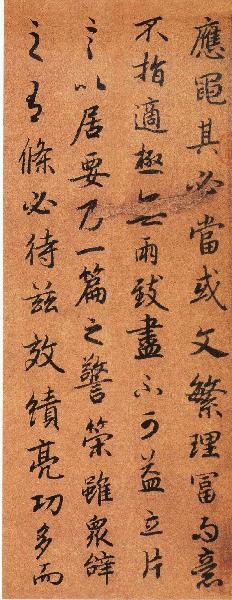 應黽其必當或文繁理冨而意
不指適極無兩致盡不可益立片
言以居要乃一篇之警策雖衆辭
之有條必待茲效績亮功多而